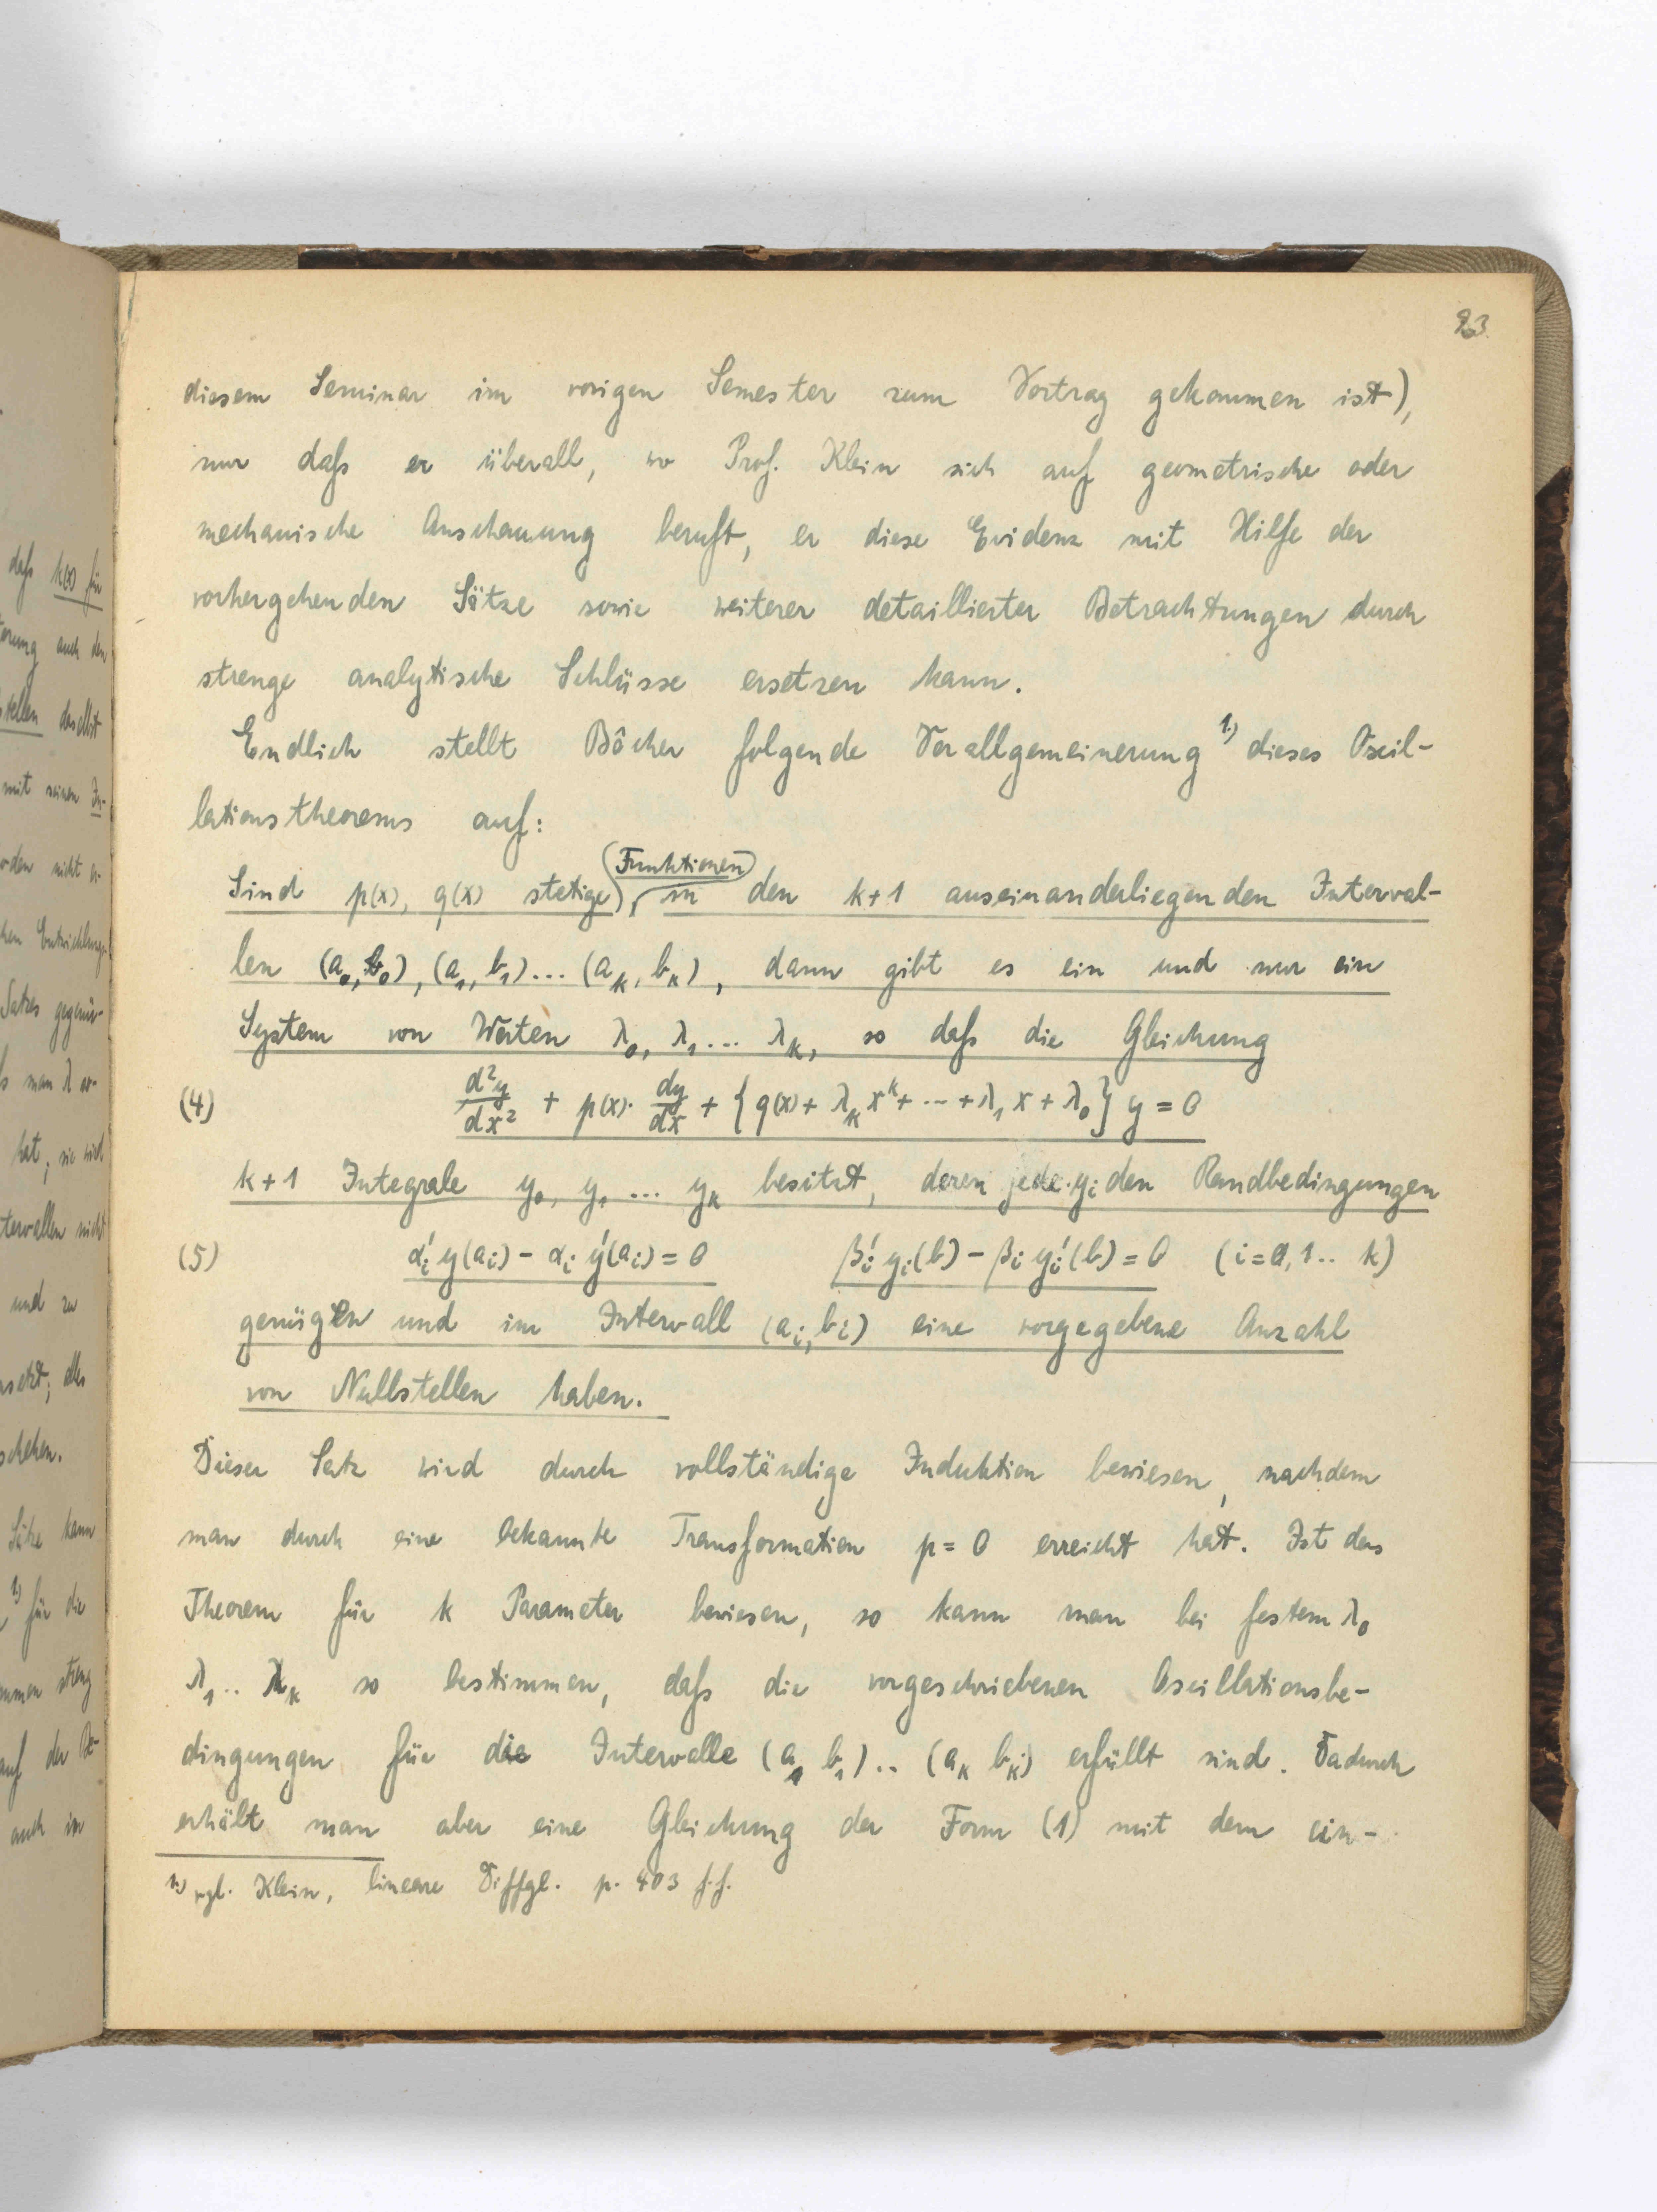 23.
diesem Seminar im vorigen Semester zum Vortrag gekommen ist),
nur daß er überall, wo Prof. Klein sich auf geometrische oder
mechanische Anschauung beruft, er diese Evidenz mit Hilfe der
vorhergehenden Sätze sowie weiterer detaillierter Betrachtungen durch
strenge analytische Schlüsse ersetzen kann.
Endlich stellt Bôcher folgende Verallgemeinerung 1.) dieses Oscil-
lationstheorems auf:
Sind p(x), q(x) stetige Funktionen in den k+1 auseinanderliegenden Interval-
len (a₀, b₀), (a₁, b₁)... (aₖ, bₖ), dann gibt es ein und nur ein
System von Werten λ₀, λ₁... λₖ, so daß die Gleichung
(4) d²y/dx² + p(x)· dy/dx + {q(x) + λₖ xᵏ + ··· + λ₁ x + λ₀} y = 0
k+1 Integrale y₀, y₁ ... yₖ besitzt, deren jede yᵢ den Randbedingungen
(5) αᵢ' y(aᵢ) - αᵢ y'(aᵢ) = 0 βᵢ' yᵢ(b) - βᵢ yᵢ'(b) = 0 (i=0,1.. k)
genügen und im Intervall (aᵢ, bᵢ) eine vorgegebene Anzahl
von Nullstellen haben.
Dieser Satz wird durch vollständige Induktion bewiesen, nachdem
man durch eine bekannte Transformation p = 0 erreicht hat. Ist das
Theorem für k Parameter bewiesen, so kann man bei festem λ₀
λ₁.. λₖ so bestimmen, daß die vorgeschriebenen Oscillationsbe-
dingungen für die Intervalle (a₁ b₁).. (aₖ bₖ) erfüllt sind. Dadurch
erhält man aber eine Gleichung der Form (1) mit dem ein-
1.) vgl. Klein, lineare Diffgl. p. 403 f.f.
daß k(x) für
auch den
stellen daselbst
mit seinen In-
nicht
Entwicklungen
Satzes gegenü-
man λ
hat, sie wird
tervallen nicht
und zu
schehen.
Sätze kann
1) für die
streng
auf der Be-
auch im